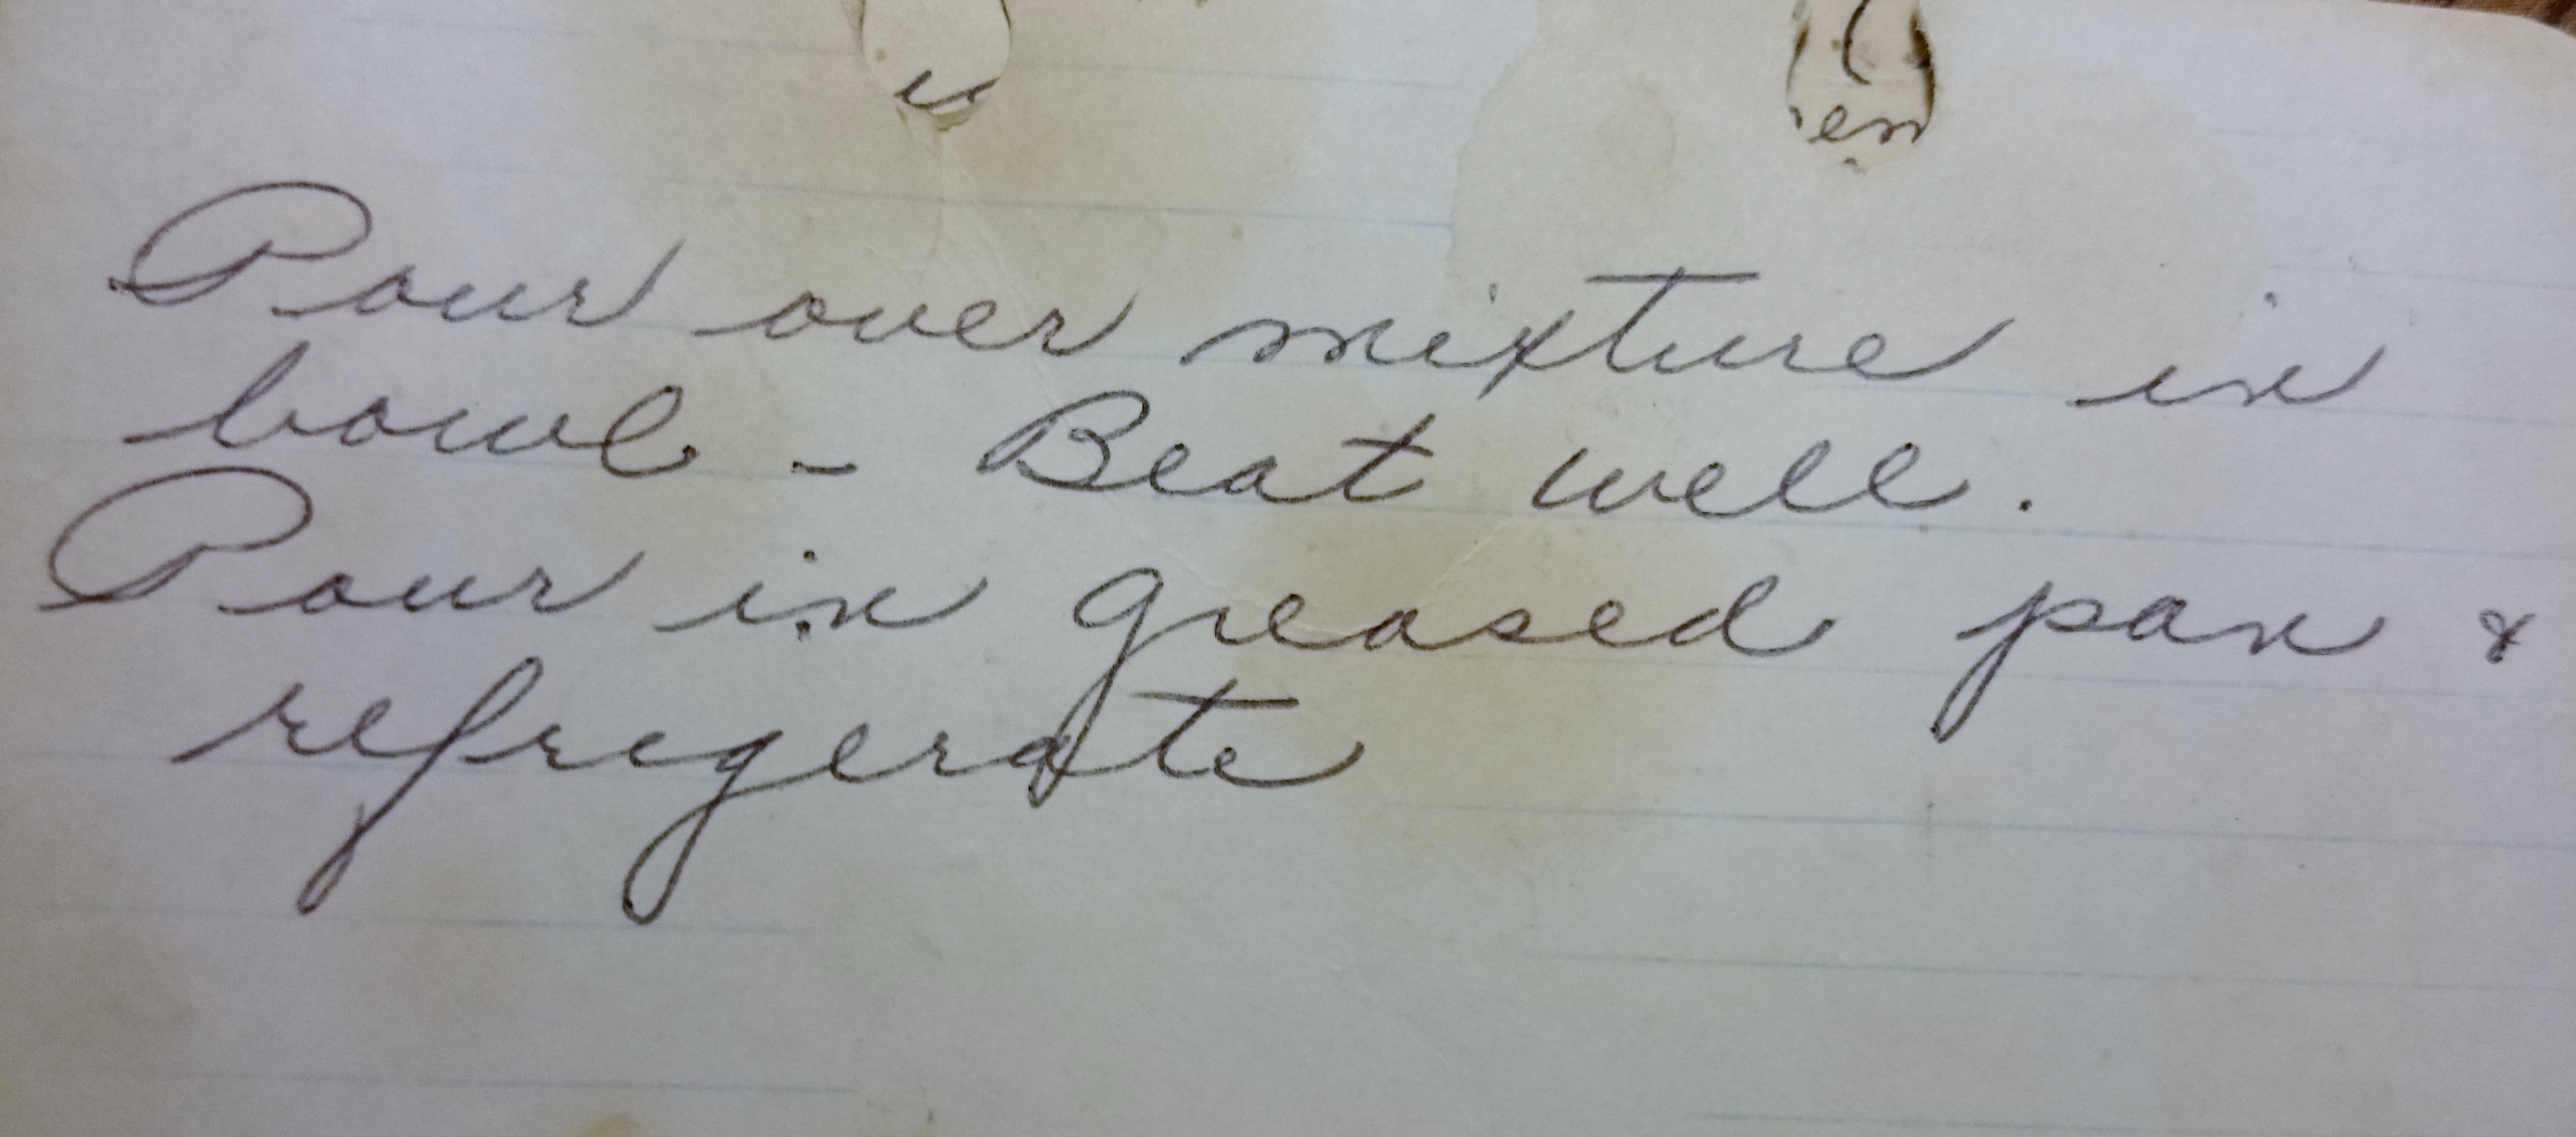 Pour over mixture in
bowl - Beat well.
Pour in greased pan &
refrigerate